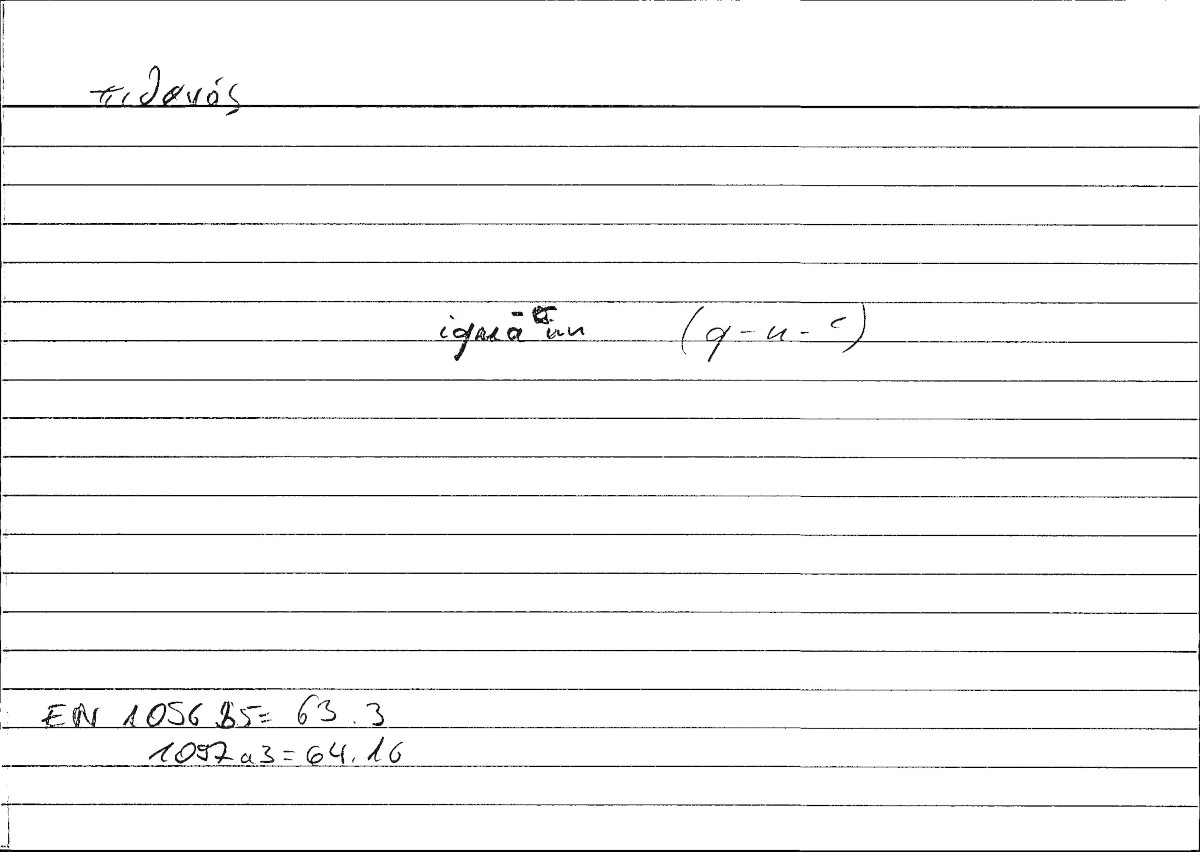 πιθανός
iqnāʿīun (q-n-ʿ)
EN 1056 b5 = 63.3
1097 a3 = 64.16